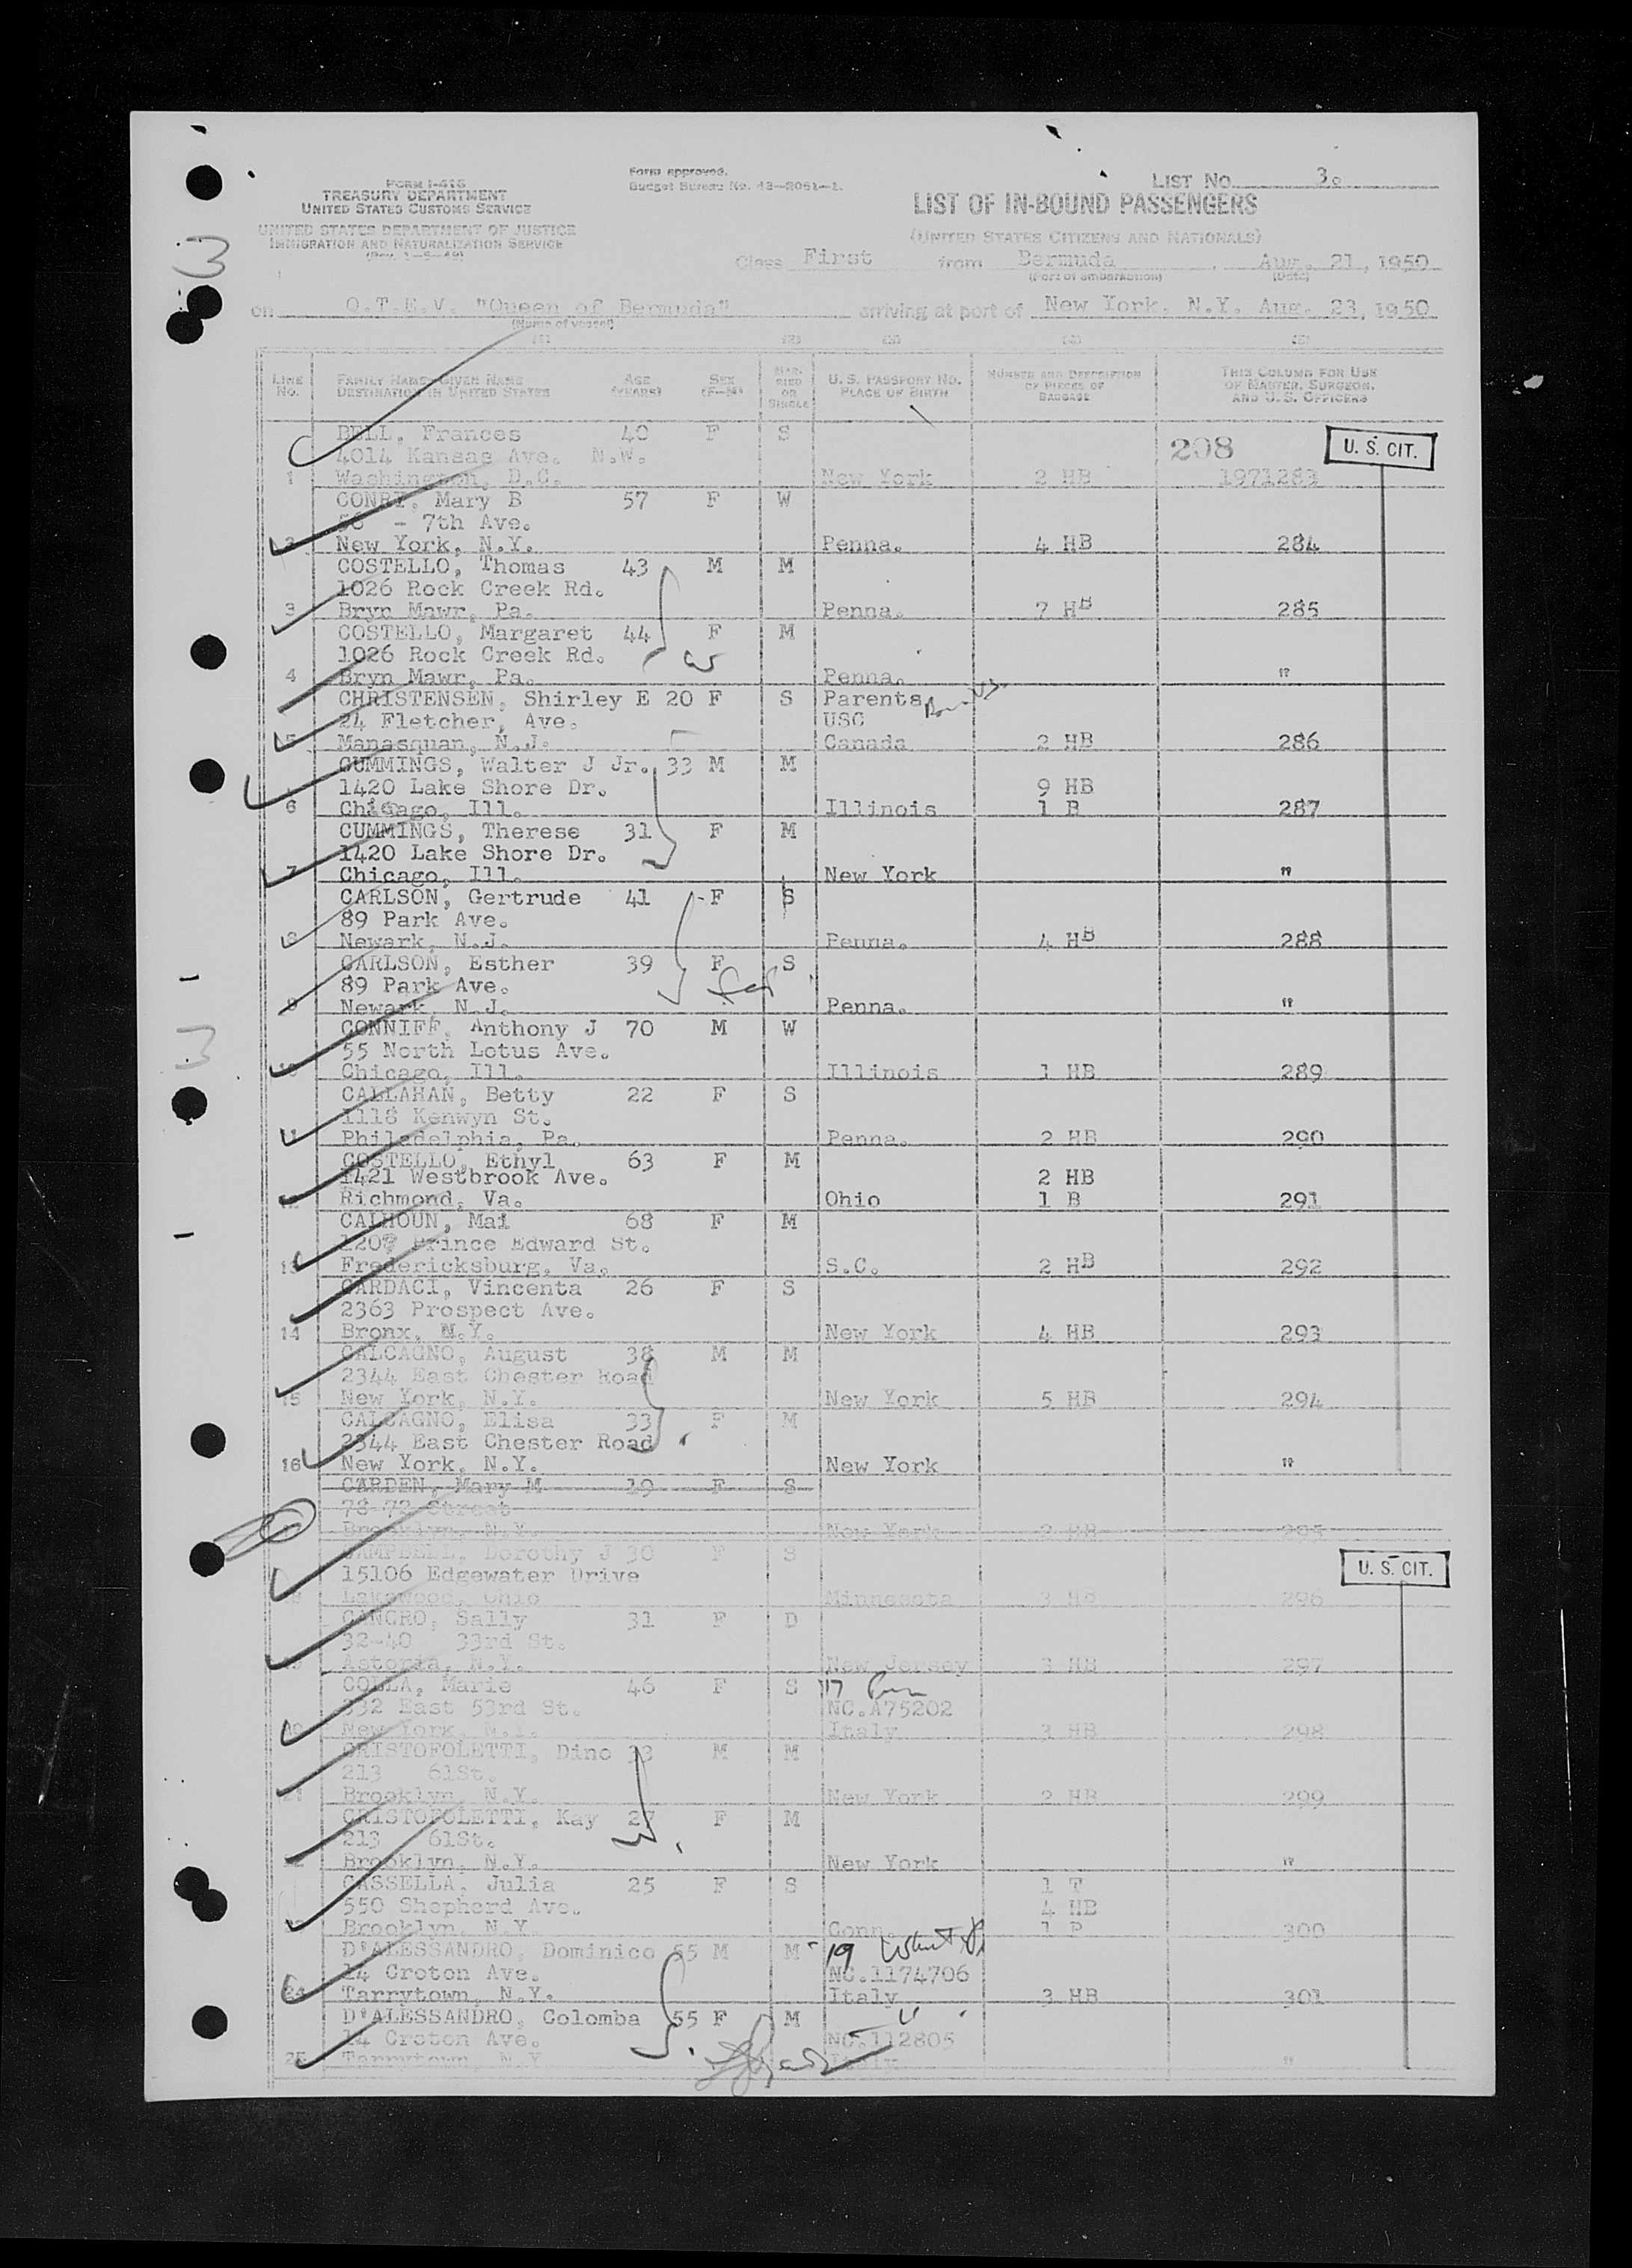 FORM I-416
TREASURY DEPARTMENT
UNITED STATES CUSTOMS SERVICE
UNITED STATES DEPARTMENT OF JUSTICE
IMMIGRATION AND NATURALIZATION SERVICE
Form approved.
Budget Bureau No. 43-R061-1.
LIST NO. 3.
LIST OF IN-BOUND PASSENGERS
(UNITED STATES CITIZENS AND NATIONALS)
Class First from Bermuda, Aug. 21, 1950
(Port of embarkation) (Date)
on Q.T.E.V. "Queen of Bermuda" arriving at port of New York, N.Y. Aug. 23, 1950
(Name of vessel)
(1) (2) (3) (4) (5)
LINE NO. FAMILY NAME—GIVEN NAME DESTINATION IN UNITED STATES AGE (YEARS) SEX (F—M) MARRIED OR SINGLE U. S. PASSPORT NO. PLACE OF BIRTH NUMBER AND DESCRIPTION OF PIECES OF BAGGAGE THIS COLUMN FOR USE OF MASTER, SURGEON, AND U. S. OFFICERS
BELL, Frances 40 F S 208 U. S. CIT.
4014 Kansas Ave. N.W.
1 Washington, D.C. New York 2 HB 1971283
CONRY, Mary B 57 F W
56 - 7th Ave.
2 New York, N.Y. Penna. 4 HB 284
COSTELLO, Thomas 43 M M
1026 Rock Creek Rd.
3 Bryn Mawr, Pa. Penna. 7 HB 285
COSTELLO, Margaret 44 F M
1026 Rock Creek Rd.
4 Bryn Mawr, Pa. Penna. "
CHRISTENSEN, Shirley E 20 F S Parents
24 Fletcher, Ave. USC
5 Manasquan, N.J. Canada 2 HB 286
CUMMINGS, Walter J Jr. 33 M M
1420 Lake Shore Dr. 9 HB
6 Chicago, Ill. Illinois 1 B 287
CUMMINGS, Therese 31 F M
1420 Lake Shore Dr.
7 Chicago, Ill. New York "
CARLSON, Gertrude 41 F S
89 Park Ave.
8 Newark, N.J. Penna. 4 HB 288
CARLSON, Esther 39 F S
89 Park Ave.
9 Newark, N.J. Penna. "
CONNIFF, Anthony J 70 M W
55 North Lotus Ave.
10 Chicago, Ill. Illinois 1 HB 289
CALLAHAN, Betty 22 F S
1118 Kenwyn St.
11 Philadelphia, Pa. Penna. 2 HB 290
COSTELLO, Ethyl 63 F M
1421 Westbrook Ave. 2 HB
12 Richmond, Va. Ohio 1 B 291
CALHOUN, Mai 68 F M
1209 Prince Edward St.
13 Fredericksburg, Va. S.C. 2 HB 292
CARDACI, Vincenta 26 F S
2363 Prospect Ave.
14 Bronx, N.Y. New York 4 HB 293
CALCAGNO, August 38 M M
2344 East Chester Road
15 New York, N.Y. New York 5 HB 294
CALCAGNO, Elisa 33 F M
2344 East Chester Road
16 New York, N.Y. New York "
CARDEN, Mary M 19 F S
78-77 Street
Brooklyn, N.Y. New York 2 HB 295
CAMPBELL, Dorothy J 30 F S U. S. CIT.
15106 Edgewater Drive
18 Lakewood, Ohio Minnesota 3 HB 296
CANCRO, Sally 31 F D
32-40 33rd St.
19 Astoria, N.Y. New Jersey 3 HB 297
COLLA, Marie 46 F S
332 East 53rd St. NC.A75202
20 New York, N.Y. Italy 3 HB 298
CRISTOFOLETTI, Dino 33 M M
213 61St.
21 Brooklyn, N.Y. New York 2 HB 299
CRISTOFOLETTI, Kay 27 F M
213 61St.
22 Brooklyn, N.Y. New York "
CASSELLA, Julia 25 F S 1 T
550 Shepherd Ave. 4 HB
23 Brooklyn, N.Y. Conn. 1 P 300
D'ALESSANDRO, Dominico 55 M M 19
14 Croton Ave. NC.1174706
24 Tarrytown, N.Y. Italy 3 HB 301
D'ALESSANDRO, Colomba 55 F M
14 Croton Ave. NC.112805
25 Tarrytown, N.Y. Italy "